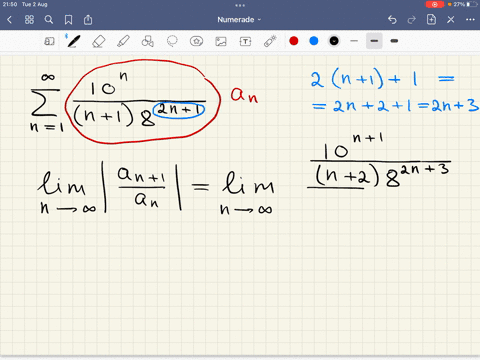 21:50 Tue 2 Aug
27%
Numerade
∞
∑ 10^n / ((n+1) 8^(2n+1)) a_n
n=1
2(n+1)+1 =
= 2n+2+1 = 2n+3
lim | a_(n+1) / a_n | = lim 10^(n+1) / ((n+2) 8^(2n+3))
n→∞ n→∞